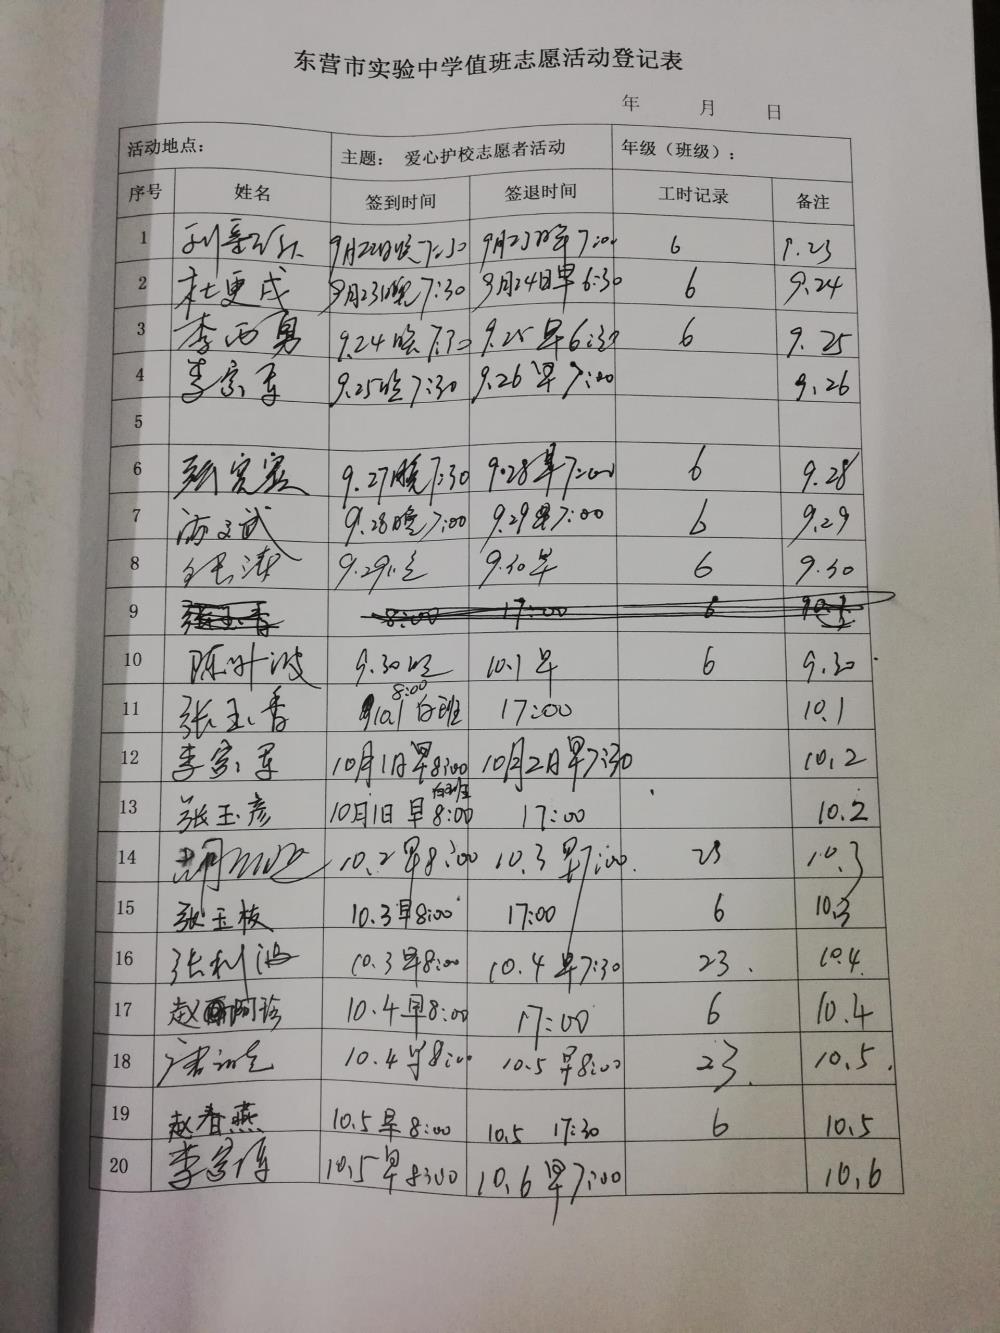 东营市实验中学值班志愿活动登记表
年 月 日
活动地点： 主题： 爱心护校志愿者活动 年级（班级）：
序号 姓名 签到时间 签退时间 工时记录 备注
1 9月22日晚7:30 9月23日早7:00 6 9.23
2 杜更成 9月23晚7:30 9月24日早6:30 6 9.24
3 李西勇 9.24晚7:30 9.25早6:30 6 9.25
4 李富军 9.25晚7:30 9.26早7:00 9.26
5
6 9.27晚7:30 9.28早7:00 6 9.28
7 9.28晚7:00 9.29早7:00 6 9.29
8 9.29晚 9.30早 6 9.30
9 张玉香 8:00 17:00 6
10 陈叶波 9.30晚 10.1早 6 9.30
11 张玉香 10.1 8:00 白班 17:00 10.1
12 李富军 10月1日早8:00 10月2日早7:30 10.2
13 张玉彦 10月1日早8:00 白班 17:00 10.2
14 10.2早8:00 10.3早7:00 23 10.3
15 张玉枝 10.3早8:00 17:00 6 10.3
16 张利波 10.3早8:00 10.4早7:30 23. 10.4
17 赵阿珍 10.4早8:00 17:00 6 10.4
18 10.4早8:00 10.5早8:00 23. 10.5.
19 赵春燕 10.5早8:00 10.5 17:30 6 10.5
20 李富军 10.5早8:00 10.6早7:00 10.6